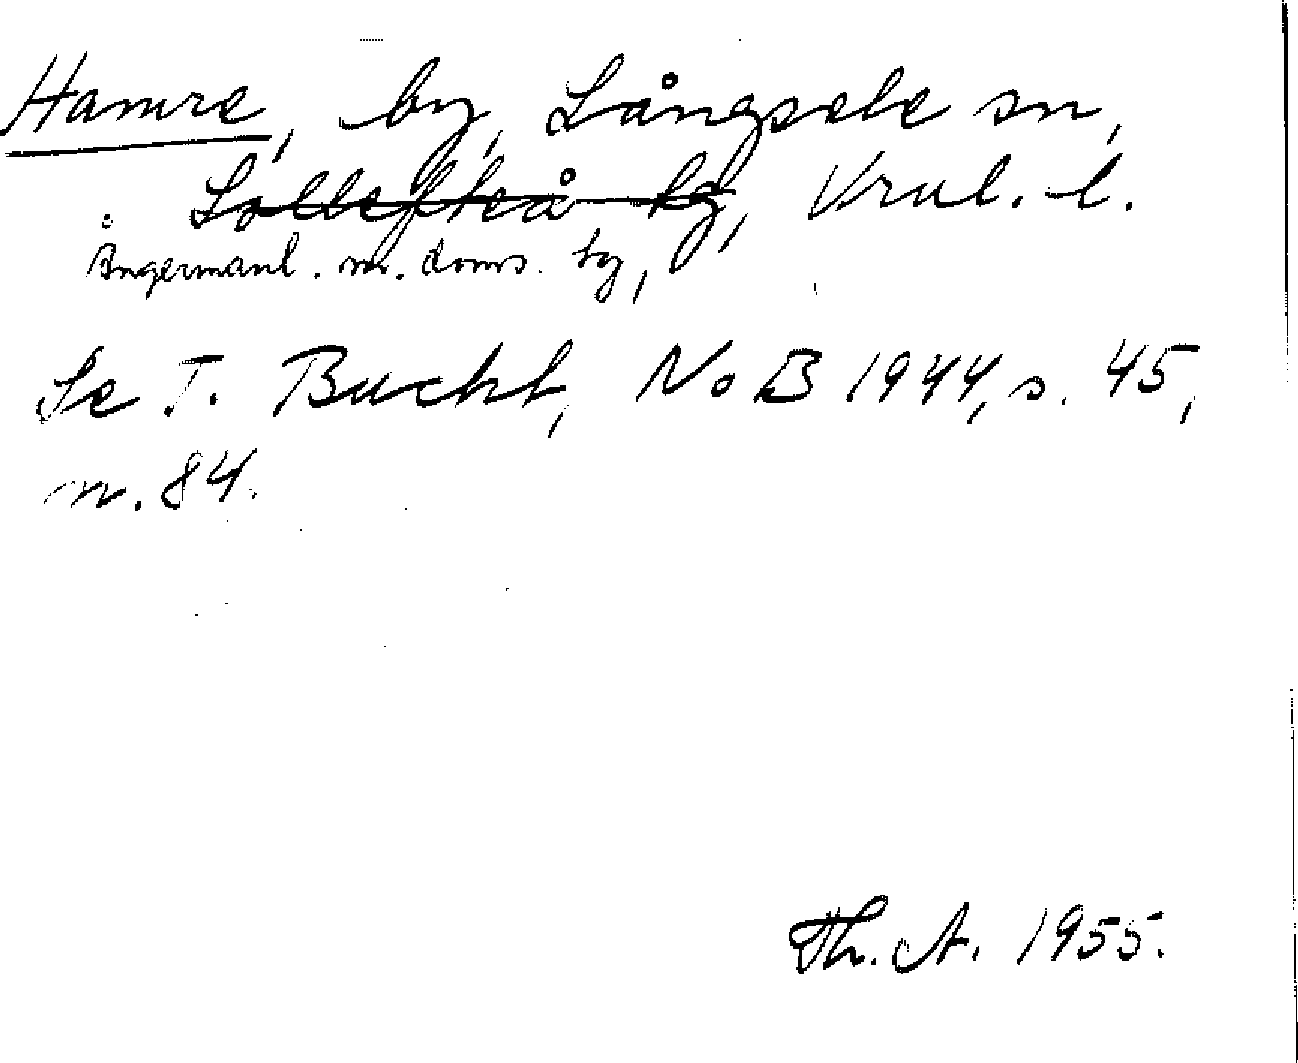 Hamre, by, Långsele sn,
Sollefteå tg, Vrnl. l.
Ångermanl. m. doms. tg,
Se T. Bucht, NoB 1944, s. 45,
m. 84.
Th. A. 1955.